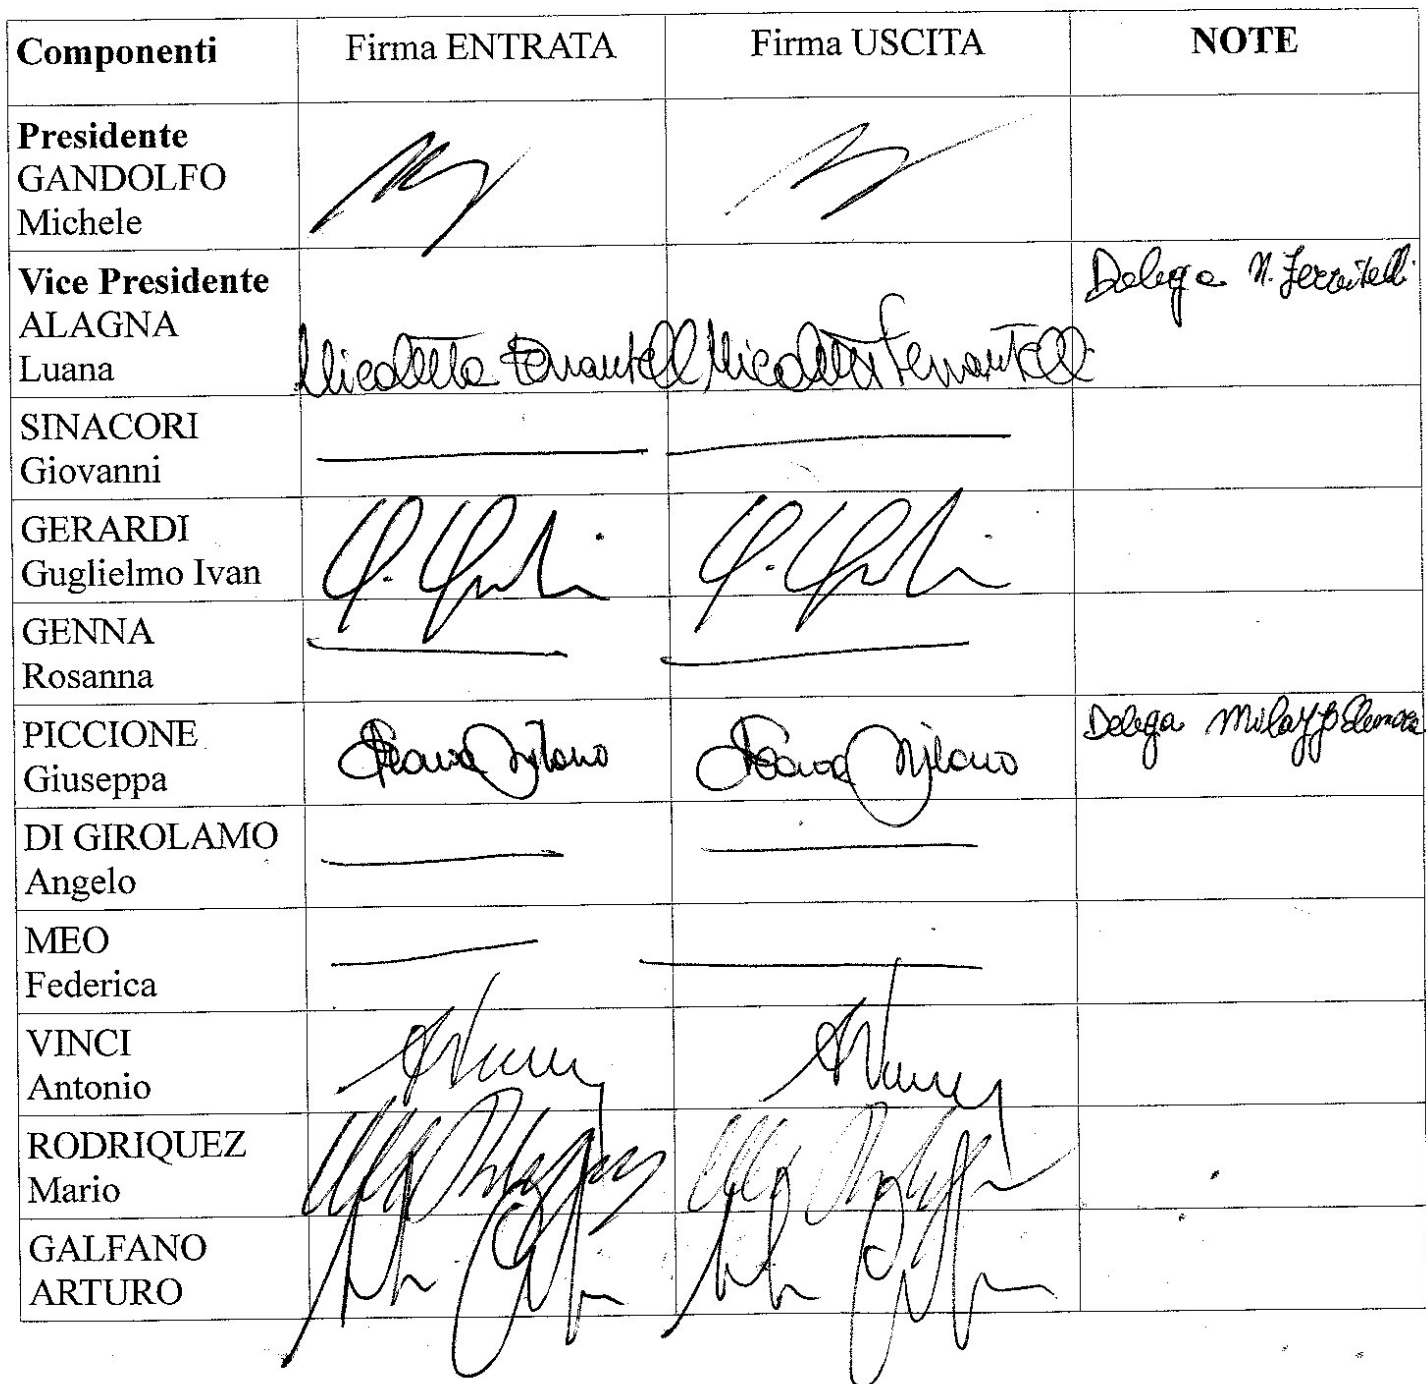 Componenti Firma ENTRATA Firma USCITA NOTE
Presidente
GANDOLFO
Michele
Vice Presidente Delega N. Ferrantelli
ALAGNA
Luana Nicoletta Ferrantelli Nicoletta Ferrantelli
SINACORI
Giovanni
GERARDI
Guglielmo Ivan
GENNA
Rosanna
PICCIONE Delega Milazzo Eleonora
Giuseppa Milazzo Milazzo
DI GIROLAMO
Angelo
MEO
Federica
VINCI
Antonio
RODRIQUEZ
Mario
GALFANO
ARTURO